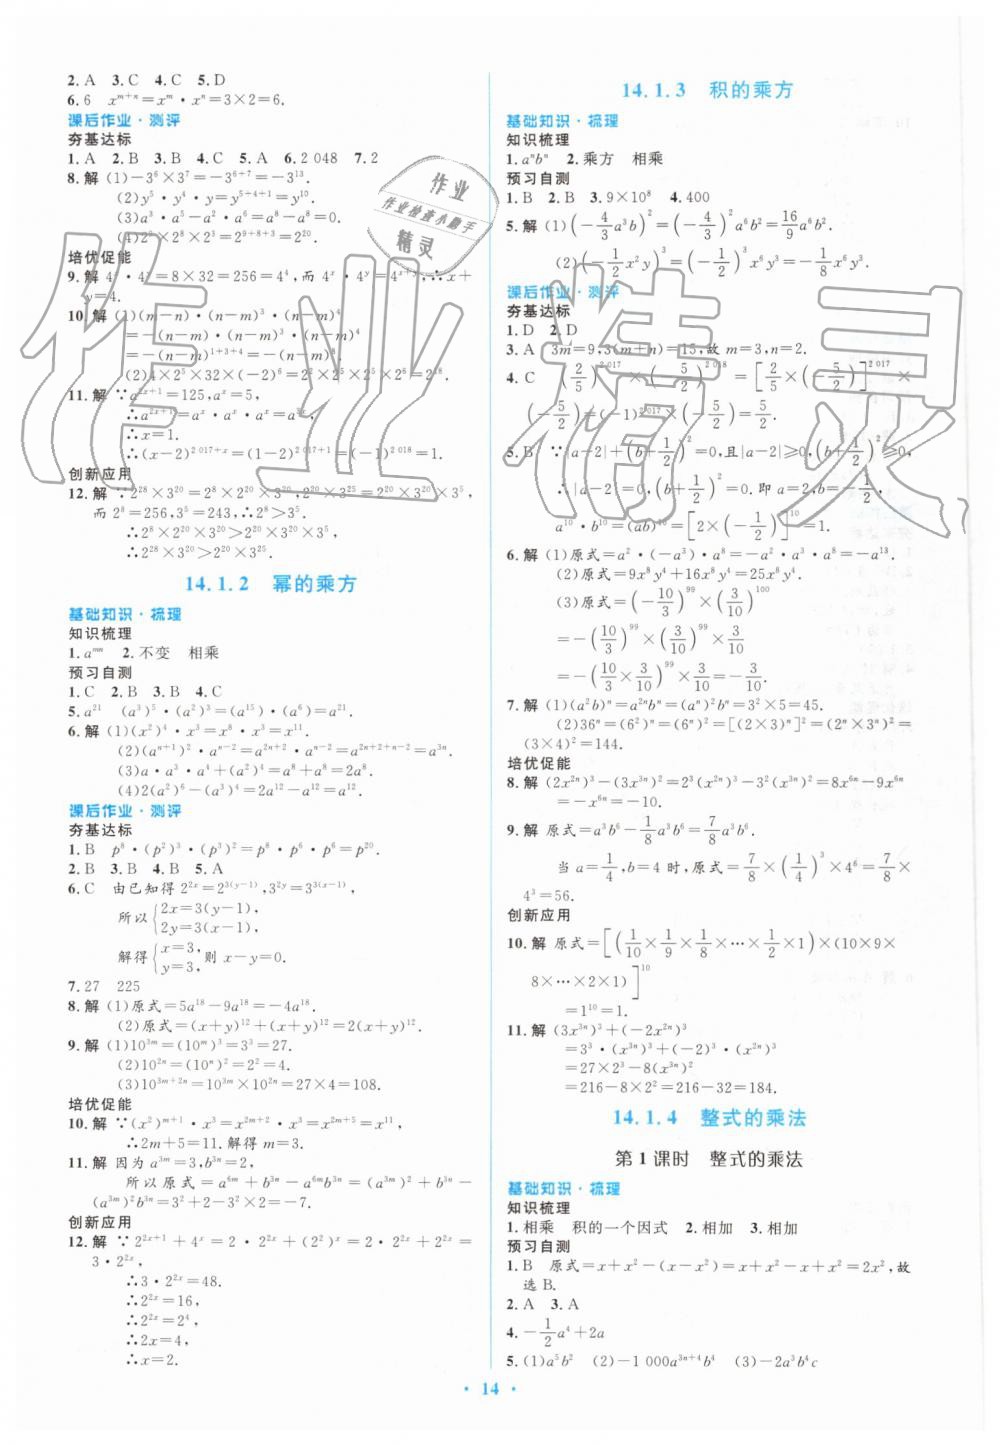 2. A 3. C 4. C 5. D
6. 6 x^{m+n}=x^m·x^n=3×2=6.
课后作业·测评
夯基达标
1. A 2. B 3. B 4. C 5. A 6. 2 048 7. 2
8. 解 (1)-3^6×3^7=-3^{6+7}=-3^{13}.
(2)y^5·y^4·y=y^{5+4+1}=y^{10}.
(3)a^3·a^5-a^5·a^3=0.
(4)2^9×2^8×2=2^{9+8+1}=2^{18}.
培优促能
9. 解 4^x·4^y=8×32=256=4^4,而 4^x·4^y=4^{x+y},∴x+
y=4.
10. 解 (1)(m-n)·(n-m)^3·(n-m)^4
=-(n-m)·(n-m)^3·(n-m)^4
=-(n-m)^{1+3+4}=-(n-m)^8.
(2)4×2^5×32×(-2)^6=2^2×2^5×2^5×2^6=2^{18}.
11. 解 ∵a^{2x+1}=125,a^x=5,
∴a^{2x+1}=a^x·a^x·a=a·5^2=125.
∴x=1.
∴(x-2)^{2 017+x}=(1-2)^{2 017+1}=(-1)^{2 018}=1.
创新应用
12. 解 ∵2^{28}×3^{20}=2^8×2^{20}×3^{20},2^{20}×3^{25}=2^{20}×3^{20}×3^5,
而 2^8=256,3^5=243,∴2^8>3^5.
∴2^8×2^{20}×3^{20}>2^{20}×3^{20}×3^5.
∴2^{28}×3^{20}>2^{20}×3^{25}.
14.1.2 幂的乘方
基础知识·梳理
知识梳理
1. a^{mn} 2. 不变 相乘
预习自测
1. C 2. B 3. B 4. C
5. a^{21} (a^3)^5·(a^2)^3=(a^{15})·(a^6)=a^{21}.
6. 解 (1)(x^2)^4·x^3=x^8·x^3=x^{11}.
(2)(a^{n+1})^2·a^{n-2}=a^{2n+2}·a^{n-2}=a^{2n+2+n-2}=a^{3n}.
(3)a·a^3·a^4+(a^2)^4=a^8+a^8=2a^8.
(4)2(a^2)^6-(a^3)^4=2a^{12}-a^{12}=a^{12}.
课后作业·测评
夯基达标
1. B p^8·(p^2)^3·(p^3)^2=p^8·p^6·p^6=p^{20}.
2. B 3. B 4. B 5. A
6. C 由已知得 2^{2x}=2^{3(y-1)},3^{2y}=3^{3(x-1)},
所以{2x=3(y-1),
2y=3(x-1),
解得{x=3,
y=3,则 x-y=0.
7. 27 225
8. 解 (1)原式=5a^{18}-9a^{18}=-4a^{18}.
(2)原式=(x+y)^{12}+(x+y)^{12}=2(x+y)^{12}.
9. 解 (1)10^{3m}=(10^m)^3=3^3=27.
(2)10^{2n}=(10^n)^2=2^2=4.
(3)10^{3m+2n}=10^{3m}×10^{2n}=27×4=108.
培优促能
10. 解 ∵(x^2)^{m+1}·x^3=x^{2m+2}·x^3=x^{2m+5}=x^{11},
∴2m+5=11.解得 m=3.
11. 解 因为 a^{3m}=3,b^{3n}=2,
所以原式=a^{6m}+b^{3n}-a^{6m}b^{3n}=(a^{3m})^2+b^{3n}-
(a^{3m})^2b^{3n}=3^2+2-3^2×2=-7.
创新应用
12. 解 ∵2^{2x+1}+4^x=2·2^{2x}+(2^2)^x=2·2^{2x}+2^{2x}=
3·2^{2x},
∴3·2^{2x}=48.
∴2^{2x}=16,
∴2^{2x}=2^4,
∴2x=4,
∴x=2.
14.1.3 积的乘方
基础知识·梳理
知识梳理
1. a^nb^n 2. 乘方 相乘
预习自测
1. B 2. B 3. 9×10^8 4. 400
5. 解 (1)(-4/3 a^3b)^2=(-4/3)^2a^6b^2=16/9 a^6b^2.
(2)(-1/2 x^2y)^3=(-1/2)^3x^6y^3=-1/8 x^6y^3.
课后作业·测评
夯基达标
1. D 2. D
3. A 3m=9,3(m+n)=15,故 m=3,n=2.
4. C (2/5)^{2 017}×(-5/2)^{2 018}=[2/5×(-5/2)]^{2 017}×
(-5/2)=(-1)^{2 017}×(-5/2)=5/2.
5. B ∵|a-2|+(b+1/2)^2=0,且|a-2|≥0,(b+1/2)^2≥0,
∴|a-2|=0,(b+1/2)^2=0.即 a=2,b=-1/2,
a^{10}·b^{10}=(ab)^{10}=[2×(-1/2)]^{10}=1.
6. 解 (1)原式=a^2·(-a^3)·a^8=-a^2·a^3·a^8=-a^{13}.
(2)原式=9x^8y^4+16x^8y^4=25x^8y^4.
(3)原式=(-10/3)^{99}×(3/10)^{100}
=-(10/3)^{99}×(3/10)^{99}×3/10
=-(10/3×3/10)^{99}×3/10=-3/10.
7. 解 (1)(a^2b)^n=a^{2n}b^n=(a^n)^2b^n=3^2×5=45.
(2)36^n=(6^2)^n=(6^n)^2=[(2×3)^n]^2=(2^n×3^n)^2=
(3×4)^2=144.
培优促能
8. 解 (2x^{2n})^3-(3x^{3n})^2=2^3(x^{2n})^3-3^2(x^{3n})^2=8x^{6n}-9x^{6n}
=-x^{6n}=-10.
9. 解 原式=a^3b^6-1/8 a^3b^6=7/8 a^3b^6.
当 a=1/4,b=4 时,原式=7/8×(1/4)^3×4^6=7/8×
4^3=56.
创新应用
10. 解 原式=[(1/10×1/9×1/8×…×1/2×1)×(10×9×
8×…×2×1)]^{10}
=1^{10}=1.
11. 解 (3x^{3n})^3+(-2x^{2n})^3
=3^3·(x^{3n})^3+(-2)^3·(x^{2n})^3
=27×(x^{3n})^3-8(x^{3n})^2
=216-8×2^2=216-32=184.
14.1.4 整式的乘法
第 1 课时 整式的乘法
基础知识·梳理
知识梳理
1. 相乘 积的一个因式 2. 相加 3. 相加
预习自测
1. B 原式=x+x^2-(x-x^2)=x+x^2-x+x^2=2x^2,故
选 B.
2. A 3. A
4. -1/2 a^4+2a
5. (1)a^5b^2 (2)-1 000a^{3n+4}b^4 (3)-2a^3b^4c
· 14 ·
作业
作业检查小助手
精灵
作业精灵